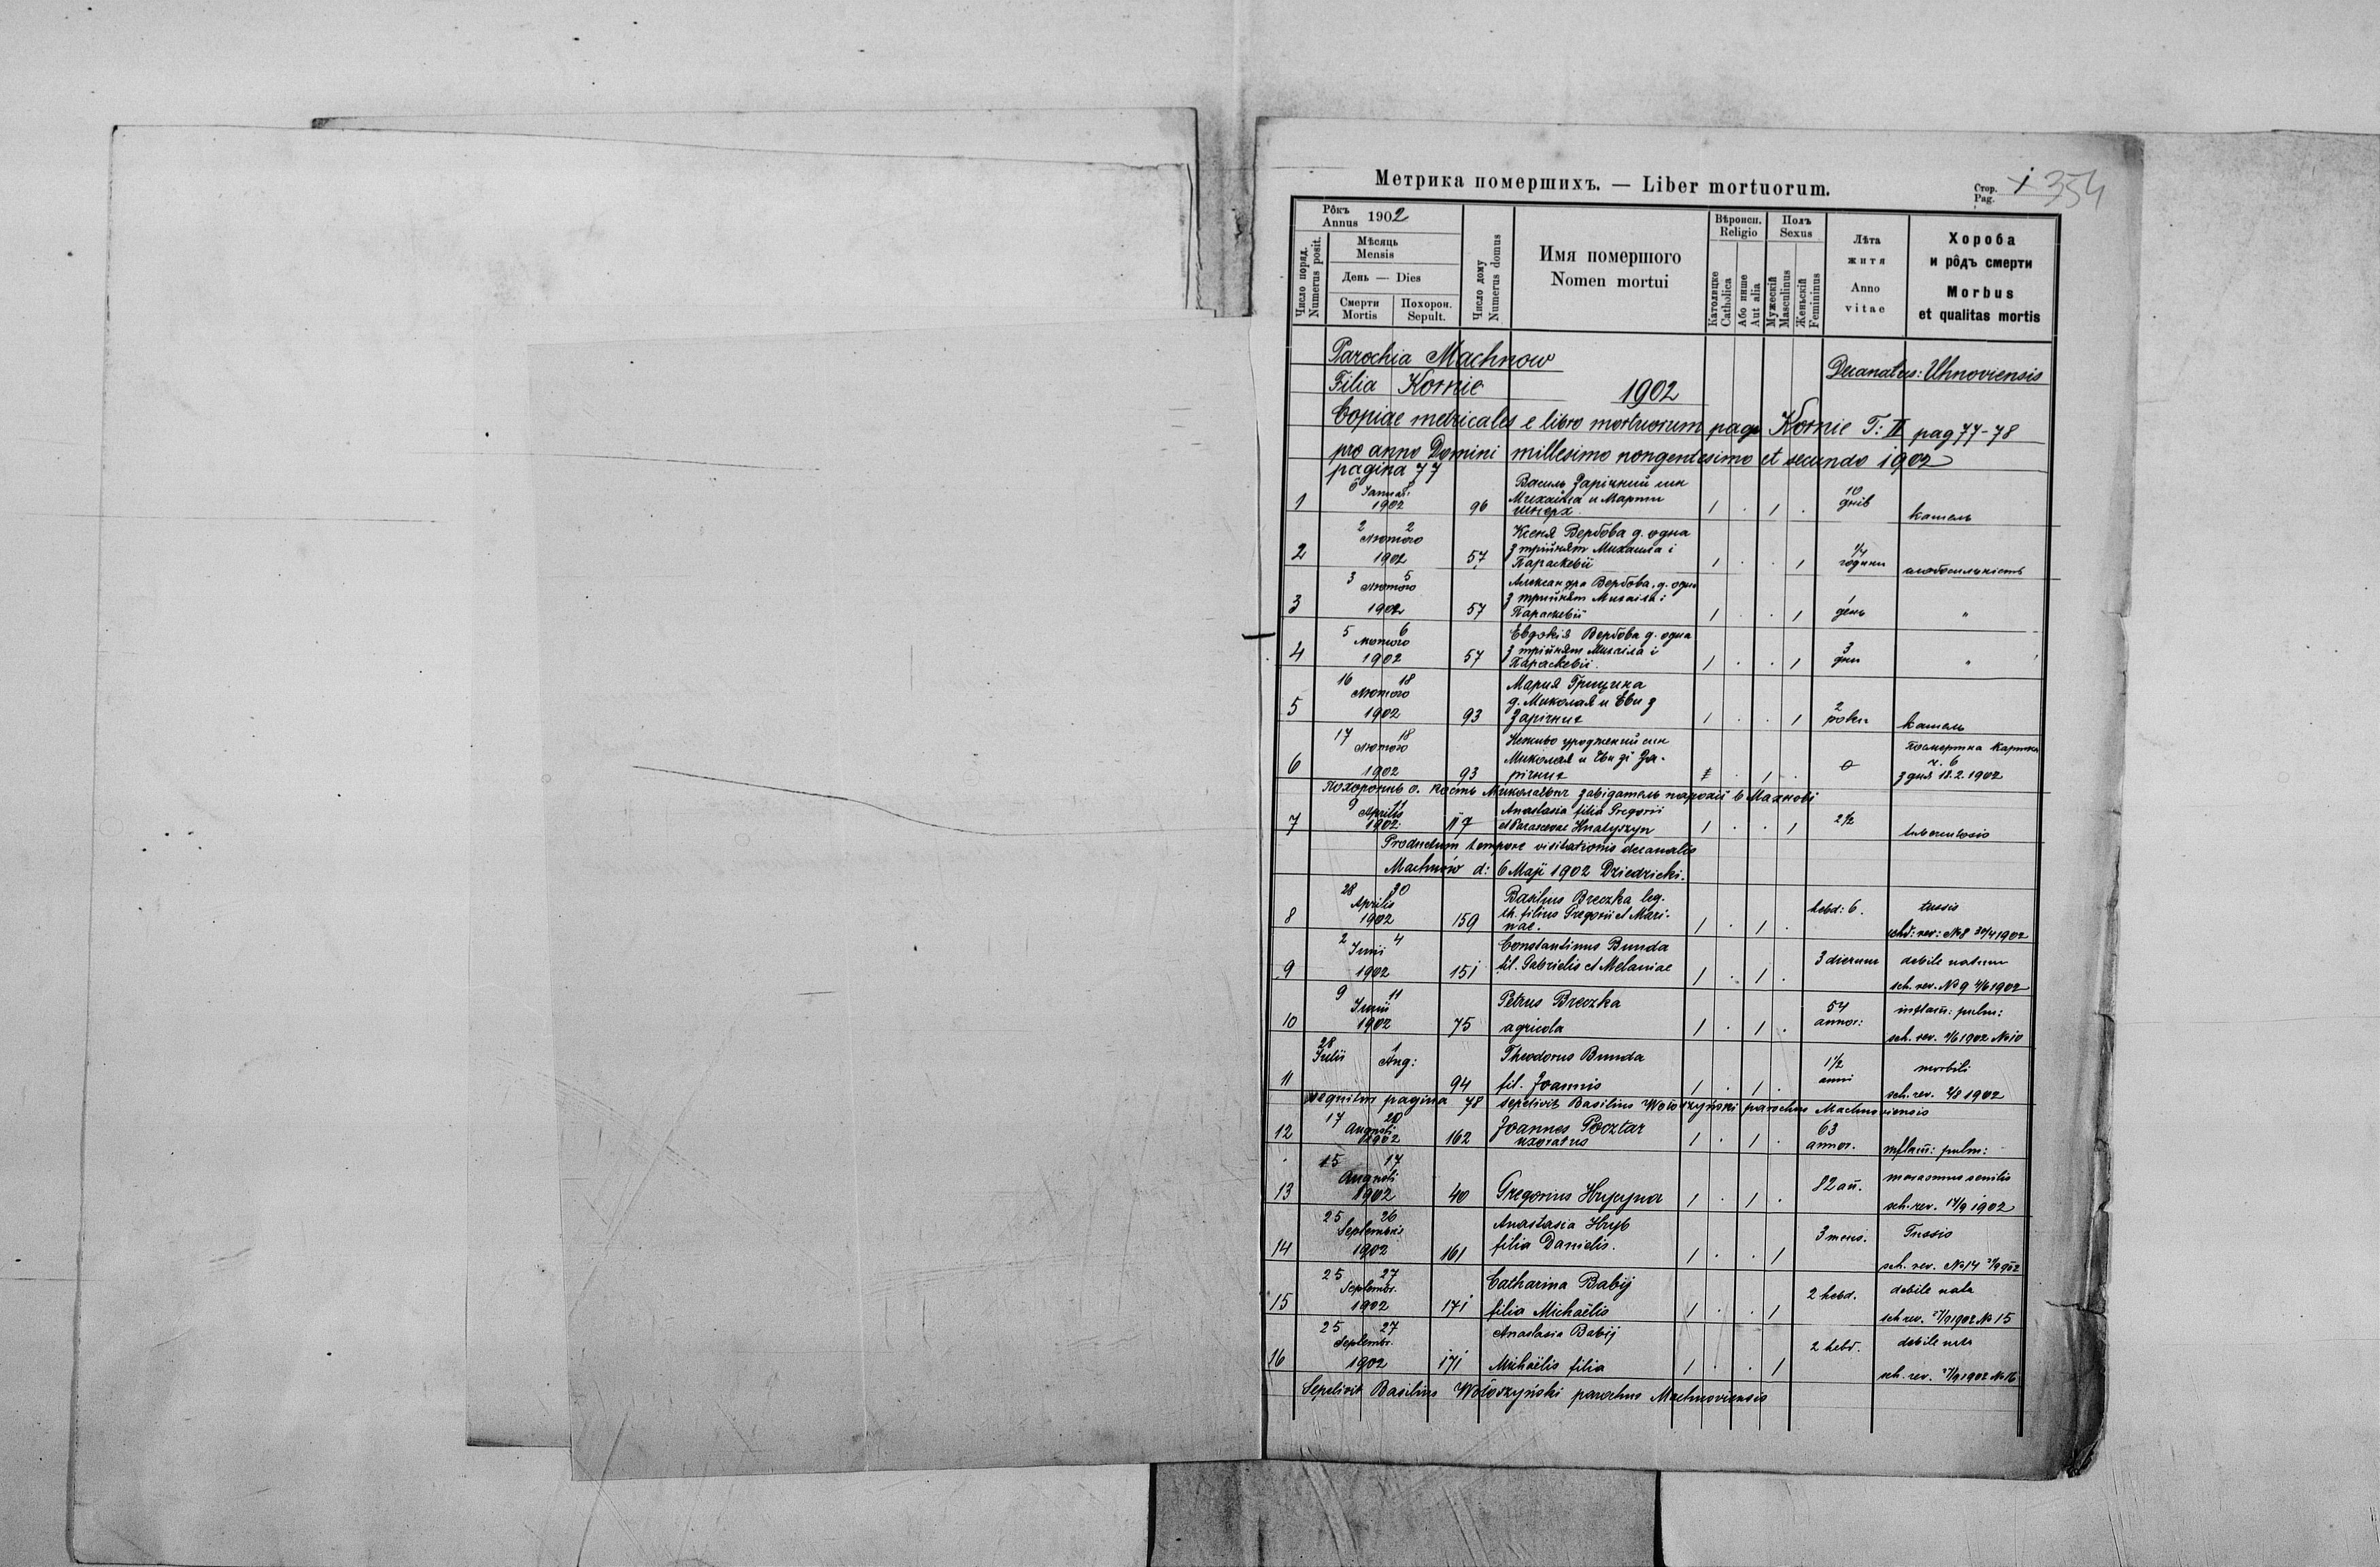 Метрика померших. — Liber mortuorum.
Стор.
Pag. 1 354
Рôкъ
Annus 1902
Число поряд.
Numerus posit.
Мѣсяць
Mensis
День — Dies
Смерти
Mortis
Похорон.
Sepult.
Число дому
Numerus domus
Имя помершого
Nomen mortui
Вѣроисп.
Religio
Католицке
Catholica
Або инше
Aut alia
Полъ
Sexus
Мужескій
Masculinus
Женьскій
Femininus
Лѣта
житя
Anno
vitae
Хороба
и рôдъ смерти
Morbus
et qualitas mortis
Parochia Machnow
Decanatus: Uhnoviensis
Filia Kornie 1902
Copiae metricales e libro mortuorum pago Kornie T: II pag 77-78
pro anno Domini millesimo nongentesimo et secundo 1902
pagina 77
6 8
Januar:
1 1902 96
Василь Зарічний син
Михайла и Марти
1 . 1 .
10
днів
кашель
2 2
Лютого
2 1902 57
Ксеня Вербова д. одна
з трійнят Михаила і
Параскевії
1 . . 1
1/4
години
3 5
Лютого
3 1902 57
Александра Вербова, д. одна
з трійнят Михаіла і
Параскевії
1 . . 1
1
день
"
5 6
Лютого
4 1902 57
Евдокія Вербова д. одна
з трійнят Михаіла і
Параскевії.
1 . . 1
3
дни
"
16 18
Лютого
5 1902 93
Мария Грицина
д. Миколая и Еви з
Зарічних
1 . . 1
2
роки
кашель
17 18
Лютого
6 1902 93
Неживо уроджений син
Миколая и Еви зі За-
річних
1 . 1 .
0
Посмертна картка
ч. 6
з дня 18.2.1902
Похоронив о. Кость Миколаєвич завідатель парохії в Махнові
9 11
Aprilis
7 1902 117
Anastasia filia Gregorii
et Parascevae Hnatyszyn
1 . . 1
2 1/2
tuberculosis
Productum tempore visitationis decanalis
Machnów d: 6 Maji 1902 Dziedzicki.
28 30
Aprilis
8 1902 159
Basilius Breczka leg.
th. filius Gregorii et Mari-
nae.
1 . 1 .
hebd: 6.
tussis
sched: rev: No 8 30/4 1902
2 4
Junii
9 1902 151
Constantinus Bunda
fil. Gabrielis et Melaniae
1 . 1 .
3 dierum
debile natum
sch. rev. No 9 4/6 1902
9 11
Junii
10 1902 75
Petrus Breczka
agricola
1 . 1 .
54
annor:
inflam: pulm:
sch. rev. 1902 No 10
28 1
Julii Aug:
11 94
Theodorus Bunda
fil. Joannis
1 . 1 .
1 1/2
anni
morbili
sch. rev. 2/8 1902
sequitur pagina 78 sepelivit Basilius Wołoszyński parochus Machnoviensis
17 20
Augusti
12 1902 162
Joannes Pocztar
uxoratus
1 . 1 .
63
annor.
inflam: pulm:
15 17
Augusti
13 1902 40
Gregorius Hrycyna
1 . 1 .
82 an.
marasmus senilis
sch. rev. 17/9 1902
25 26
Septembris
14 1902 161
Anastasia Hryb
filia Danielis.
1 . . 1
3 mens.
Tussis
sch. rev. No 14
25 27
Septembr.
15 1902 171
Catharina Babij
filia Michaëlis
1 . . 1
2 hebd.
debile nata
sch rev. 27/9 1902 No 15
25 27
Septembr.
16 1902 171
Anastasia Babij
Michaëlis filia
1 . . 1
2 hebd.
debile nata
sch. rev. 27/9 1902 No 16
Sepelivit Basilius Wołoszyński parochus Machnoviensis